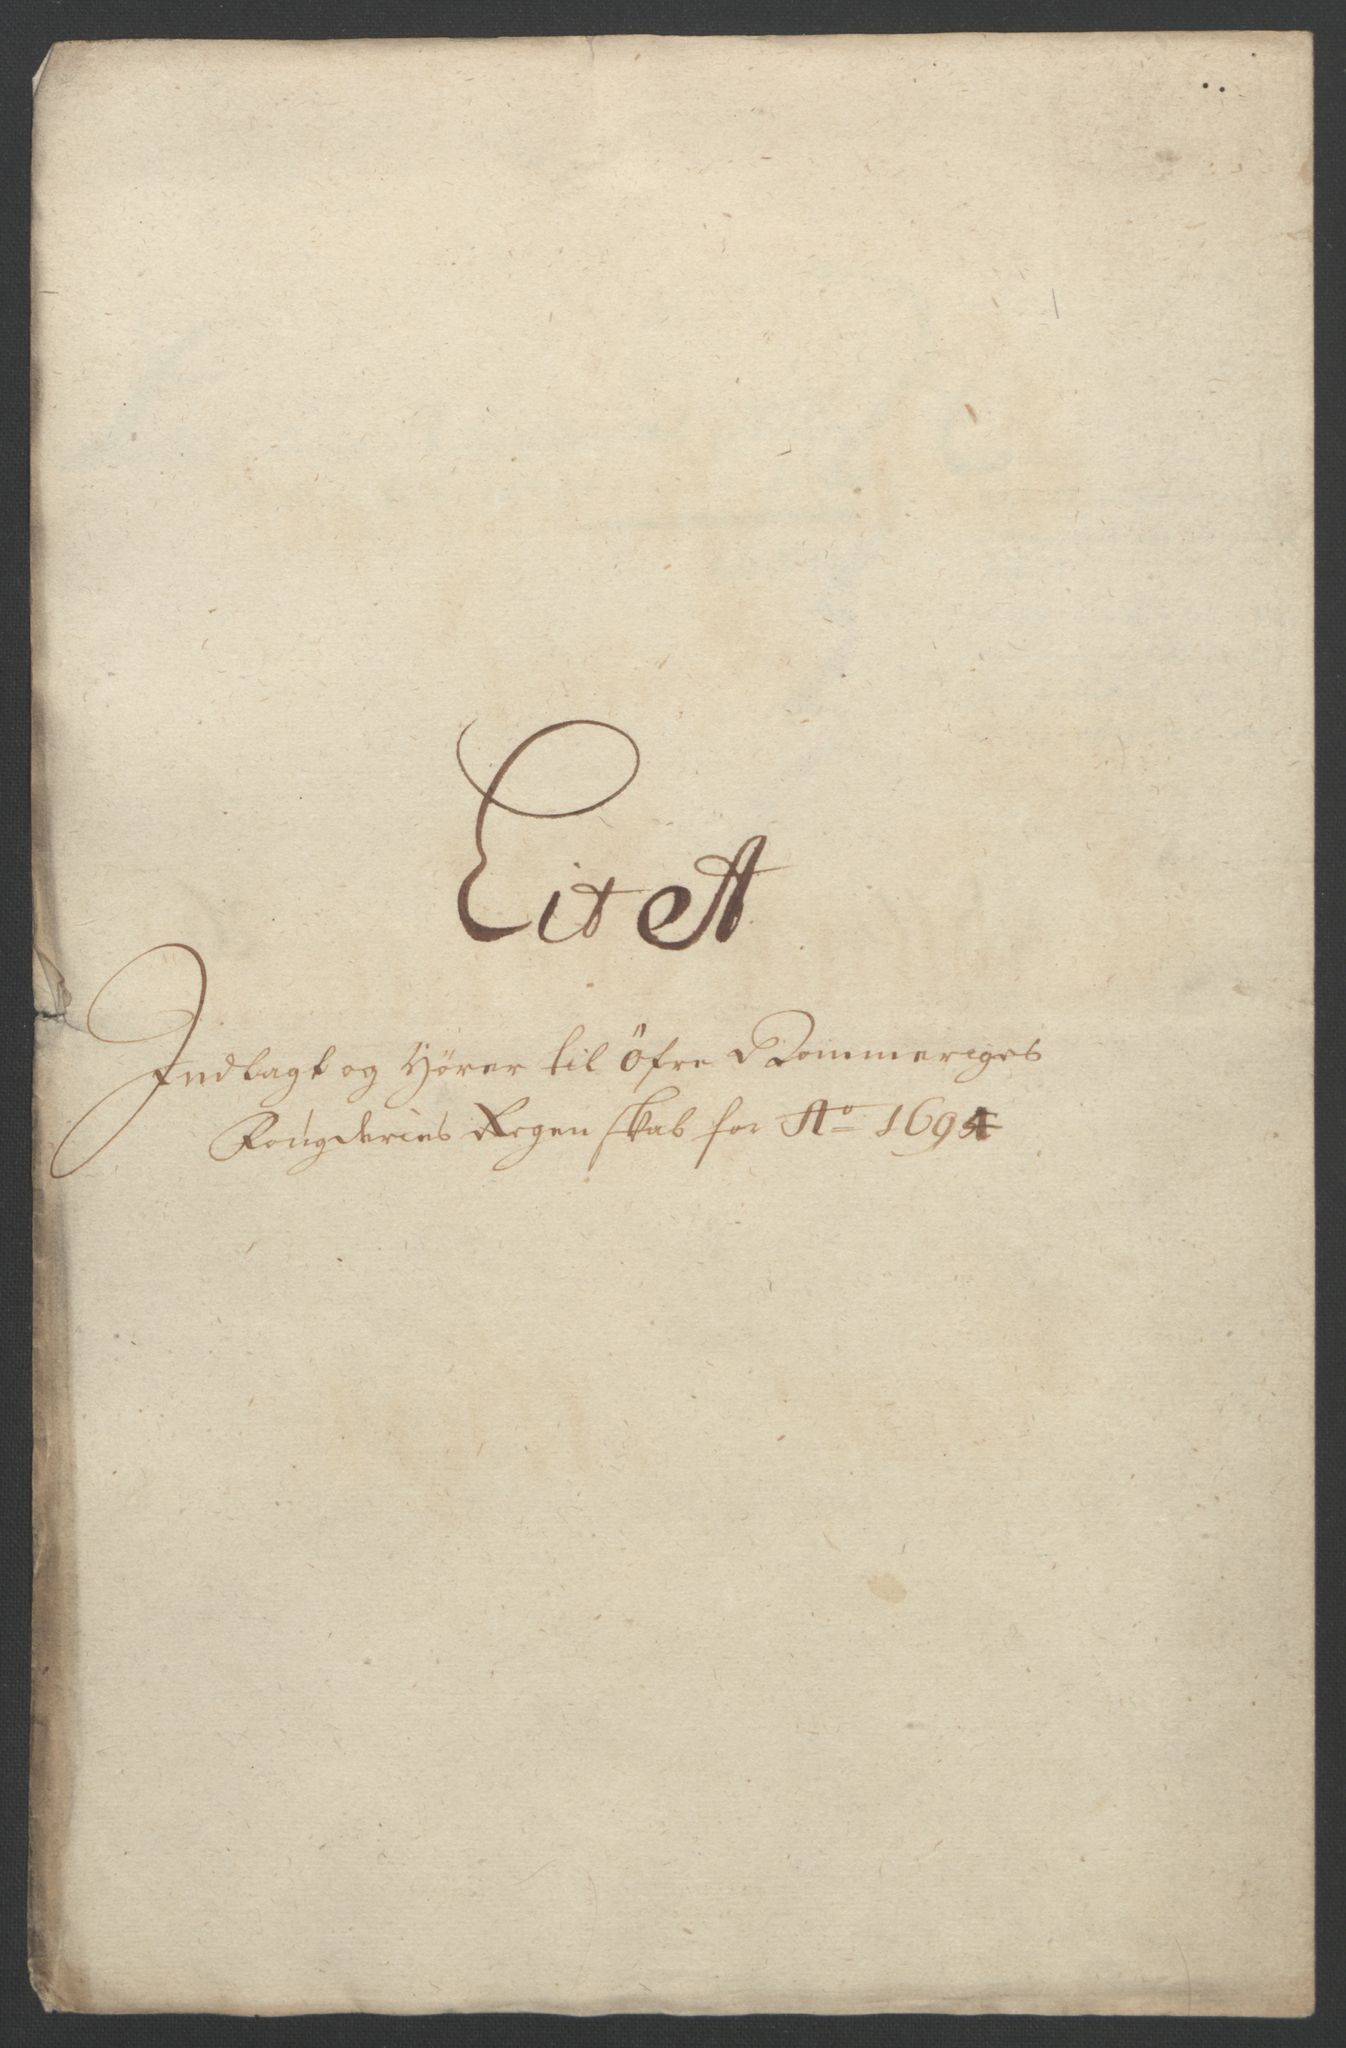 Lit A
Indlagt og Hörer til öfre Rommeriges
Fougderies Regenskab for Ao 1694